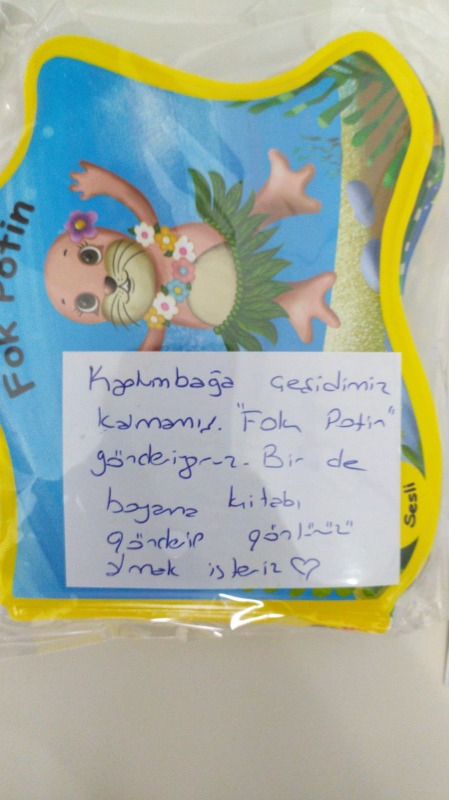 Fok Potin
Kaplumbağa çeşidimiz
kalmamış. "Fok Potin"
gönderiyoruz. Bir de
boyama kitabı
gönderip gönlünüzü
almak isteriz ♡
Sesli